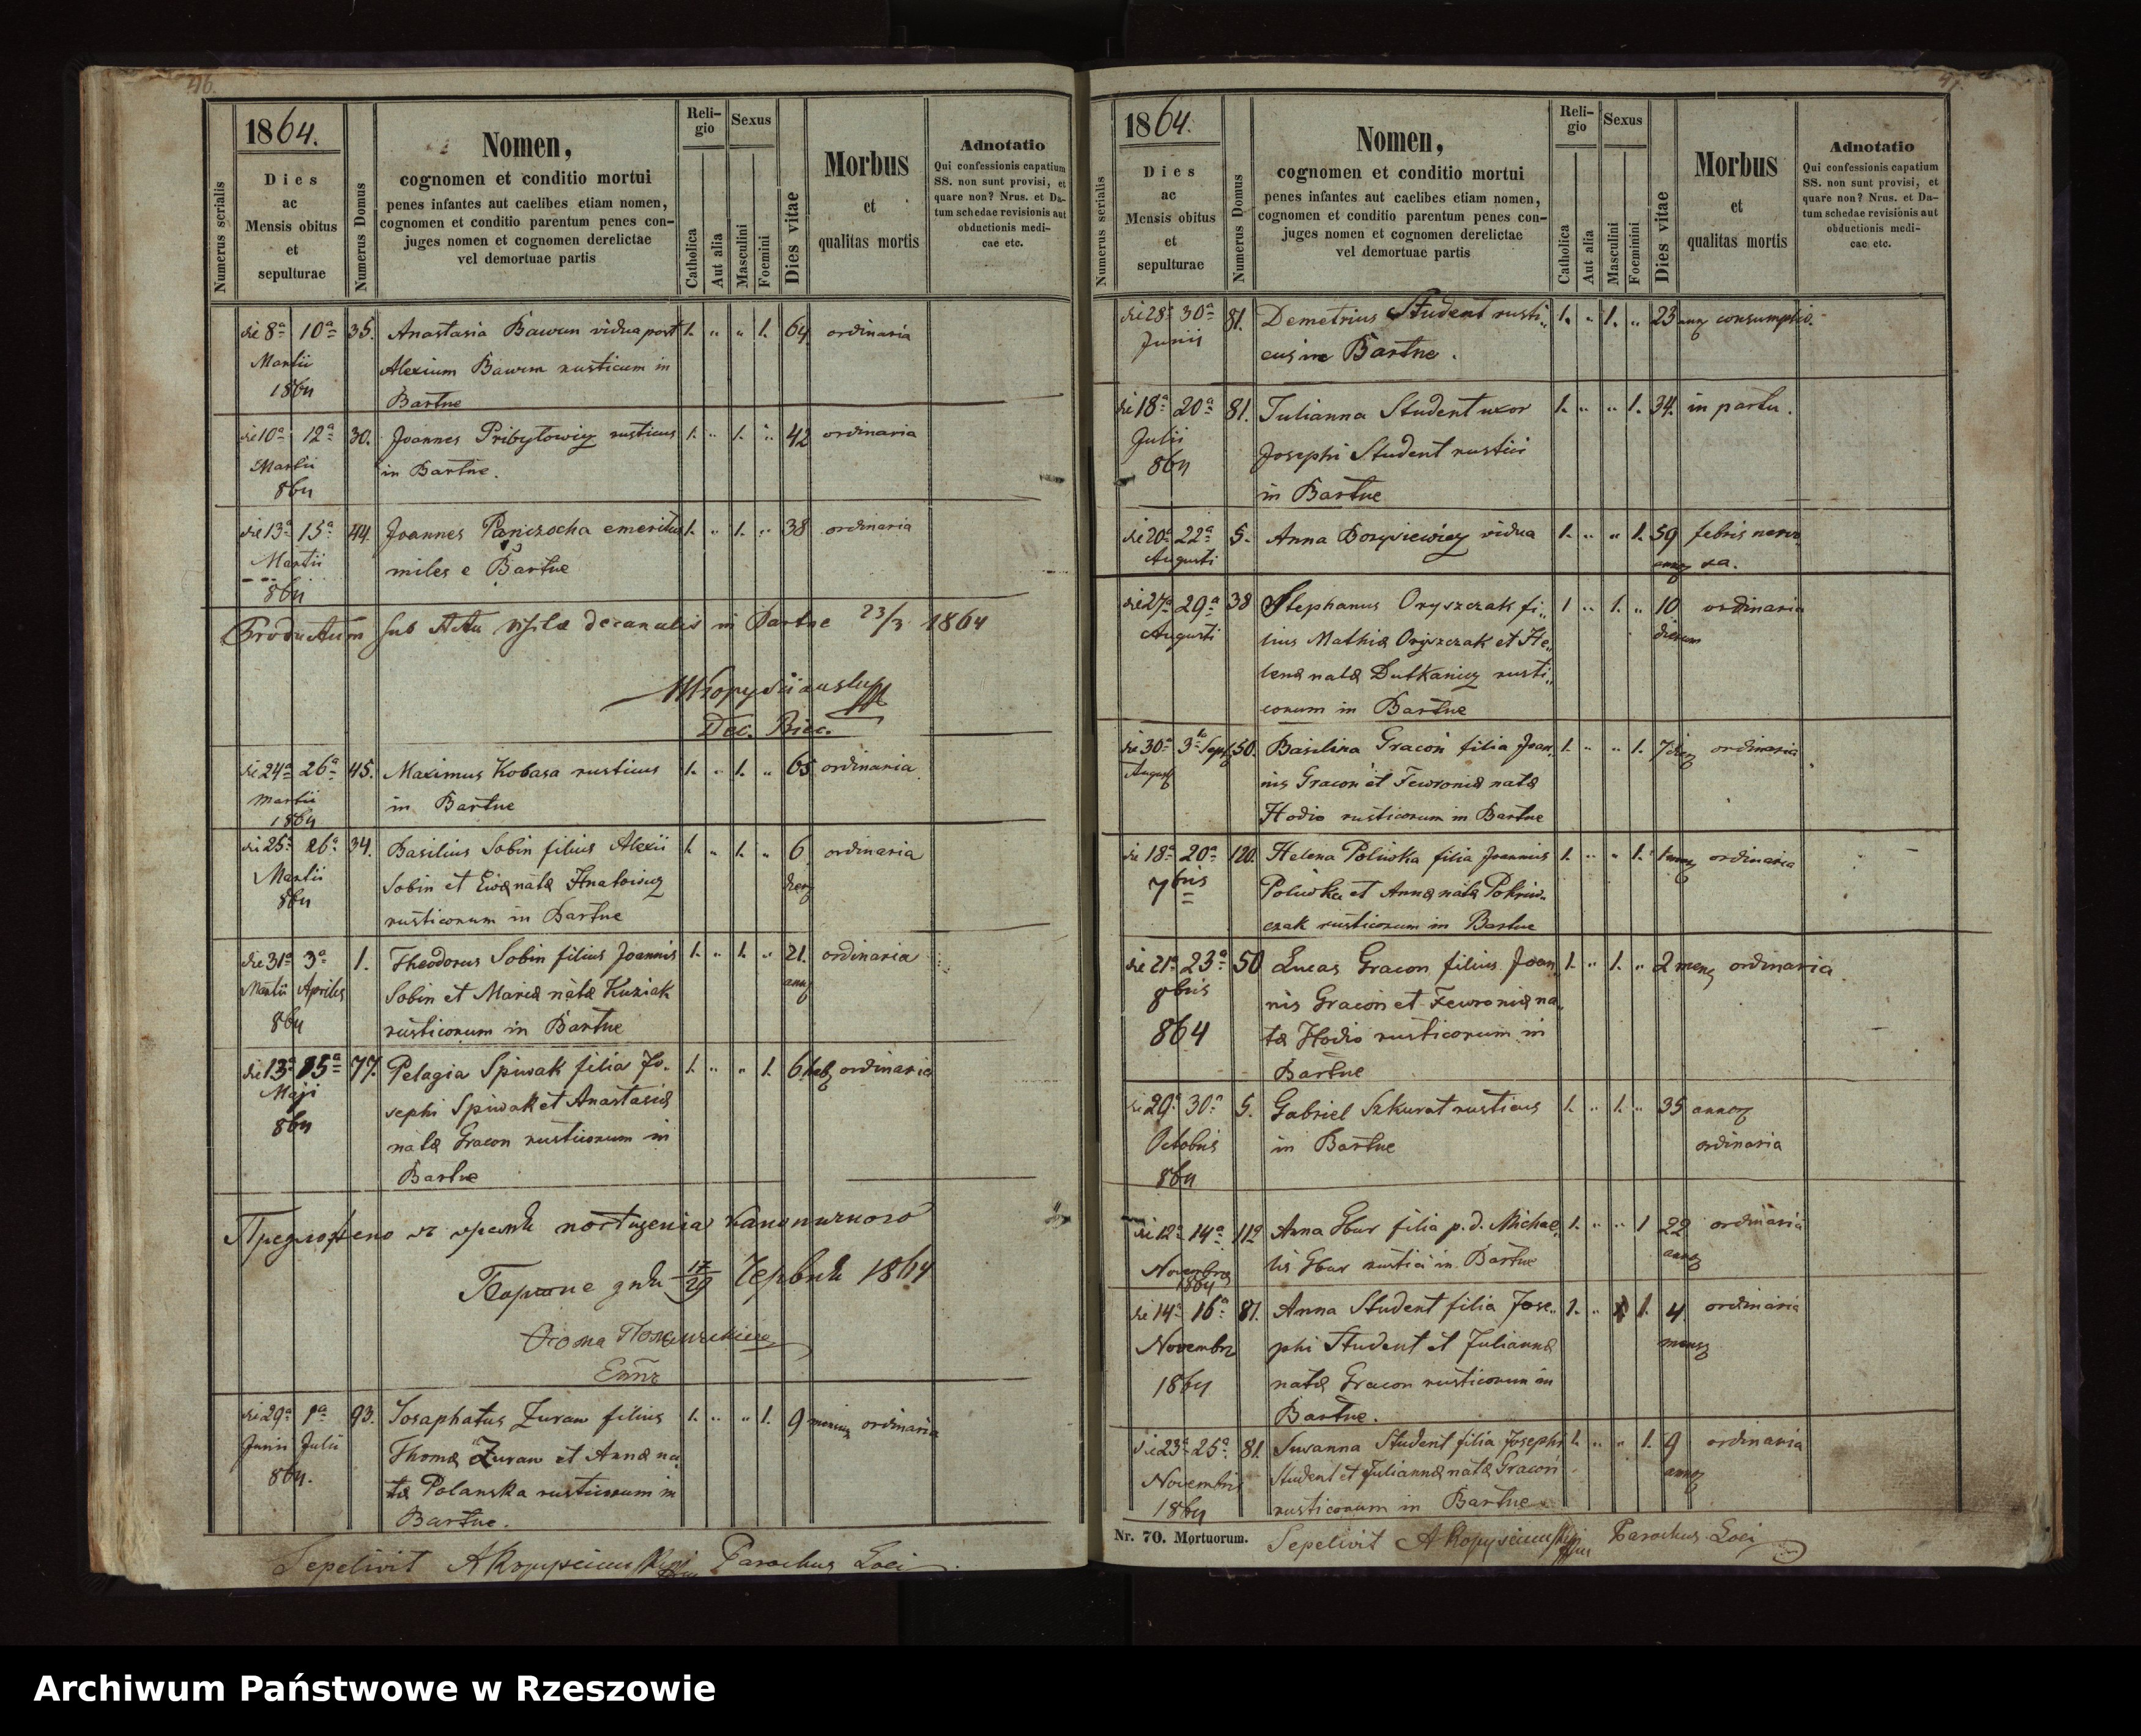 46.
1864.
Numerus serialis
Dies
ac
Mensis obitus
et
sepulturae
Numerus Domus
Nomen,
cognomen et conditio mortui
penes infantes aut caelibes etiam nomen,
cognomen et conditio parentum penes con-
juges nomen et cognomen derelictae
vel demortuae partis
Reli-
gio
Catholica
Aut alia
Sexus
Masculini
Foeminini
Dies vitae
Morbus
et
qualitas mortis
Adnotatio
Qui confessionis capatium
SS. non sunt provisi, et
quare non? Nrus. et Da-
tum schedae revisionis aut
obductionis medi-
cae etc.
die 8ª 10ª 35. Anastasia Bawun vidua post 1. " " 1. 64 ordinaria
Martii Alexium Bawun rusticum in
1864 Bartne
die 10ª 12ª 30. Joannes Pribyłowicz rusticus 1. " 1. " 42 ordinaria
Martii in Bartne.
864
die 13ª 15ª 44. Joannes Panczocha emeritus 1. " 1. " 38 ordinaria
Martii miles e Bartne
864
Productum sub Actu visitae decanalis in Bartne 23/3 1864
Dec. Biec.
die 24ª 26ª 45. Maximus Kobasa rusticus 1. " 1. " 65 ordinaria
Martii in Bartne
1864
die 25ª 26ª 34. Basilius Sobin filius Alexii 1. " 1. " 6 ordinaria
Martii Sobin et Evæ natæ Hnatowicz dierz
864 rusticorum in Bartne
die 31ª 3ª 1. Theodorus Sobin filius Joannis 1. " 1. " 21. ordinaria
Martii Aprilis Sobin et Mariæ natæ Kuziak annz
864 rusticorum in Bartne
die 13ª 15ª 77. Pelagia Spiwak filia Jo- 1. " " 1. 6 hebz ordinaria
Maji sephi Spiwak et Anastasiæ
864 natæ Gracon rusticorum in
Bartne
Предложено въ время постиженія каноничного
Бартне дня 17/29 Червня 1864
die 29ª 1ª 93. Josaphatus Zuraw filius 1. " " 1. 9 ordinaria
Junii Julii Thomæ Zuraw et Annæ na-
864. tæ Polanska rusticorum in
Bartne.
Sepelivit Parochus Loci
1864.
Numerus serialis
Dies
ac
Mensis obitus
et
sepulturae
Numerus Domus
Nomen,
cognomen et conditio mortui
penes infantes aut caelibes etiam nomen,
cognomen et conditio parentum penes con-
juges nomen et cognomen derelictae
vel demortuae partis
Reli-
gio
Catholica
Aut alia
Sexus
Masculini
Foeminini
Dies vitae
Morbus
et
qualitas mortis
Adnotatio
Qui confessionis capatium
SS. non sunt provisi, et
quare non? Nrus. et Da-
tum schedae revisionis aut
obductionis medi-
cae etc.
die 28ª 30ª 81. Demetrius Student rusti- 1. " 1. " 23 annz consumptio.
Junii cus in Bartne.
die 18ª 20ª 81. Julianna Student uxor 1. " " 1. 34. in partu.
Julii Josephi Student rustici
864 in Bartne
die 20ª 22ª 5. Anna Borysiewicz vidua 1. " " 1. 59 febris nervo-
Augusti annz sa.
die 27ª 29ª 38 Stephanus Oryszczak fi- 1 " 1. " 10 ordinaria
Augusti lius Mathiæ Oryszczak et He- dierum
lenæ natæ Dutkanicz rusti-
corum in Bartne
die 30ª 3ª Sept 50. Basilina Gracoń filia Joan- 1. " " 1. 7 dierz ordinaria
August nis Gracoń et Fewroniæ natæ
Hodio rusticorum in Bartne
die 18ª 20ª 120. Helena Poliwka filia Joannis 1. " " 1. ordinaria
7bris Poliwka et Annæ natæ Pokriw-
czak rusticorum in Bartne
die 21ª 23ª 50 Lucas Gracon filius Joan- 1. " 1. " 2 menz ordinaria
8bris nis Gracoń et Fewroniæ na-
864 tæ Hodio rusticorum in
Bartne
die 29ª 30ª 5. Gabriel Szkurat rusticus 1. " 1. " 35 annorz
Octobris in Bartne ordinaria
864
die 12ª 14ª 112 Anna Gbur filia p. d. Michae- 1. " " 1 22 ordinaria
Novembris lis Gbur rustici in Bartne annz
1864
die 14ª 16ª 81. Anna Student filia Jose- 1. " 1. 4 ordinaria
Novembr phi Student et Juliannæ mensz
1864 natæ Gracon rusticorum in
Bartne.
die 23ª 25ª 81. Susanna Student filia Josephi 1. " " 1. 9 ordinaria
Novembris Student et Juliannæ natæ Gracoń annz
1864 rusticorum in Bartne
Nr. 70. Mortuorum. Sepelivit Parochus Loci
Archiwum Państwowe w Rzeszowie